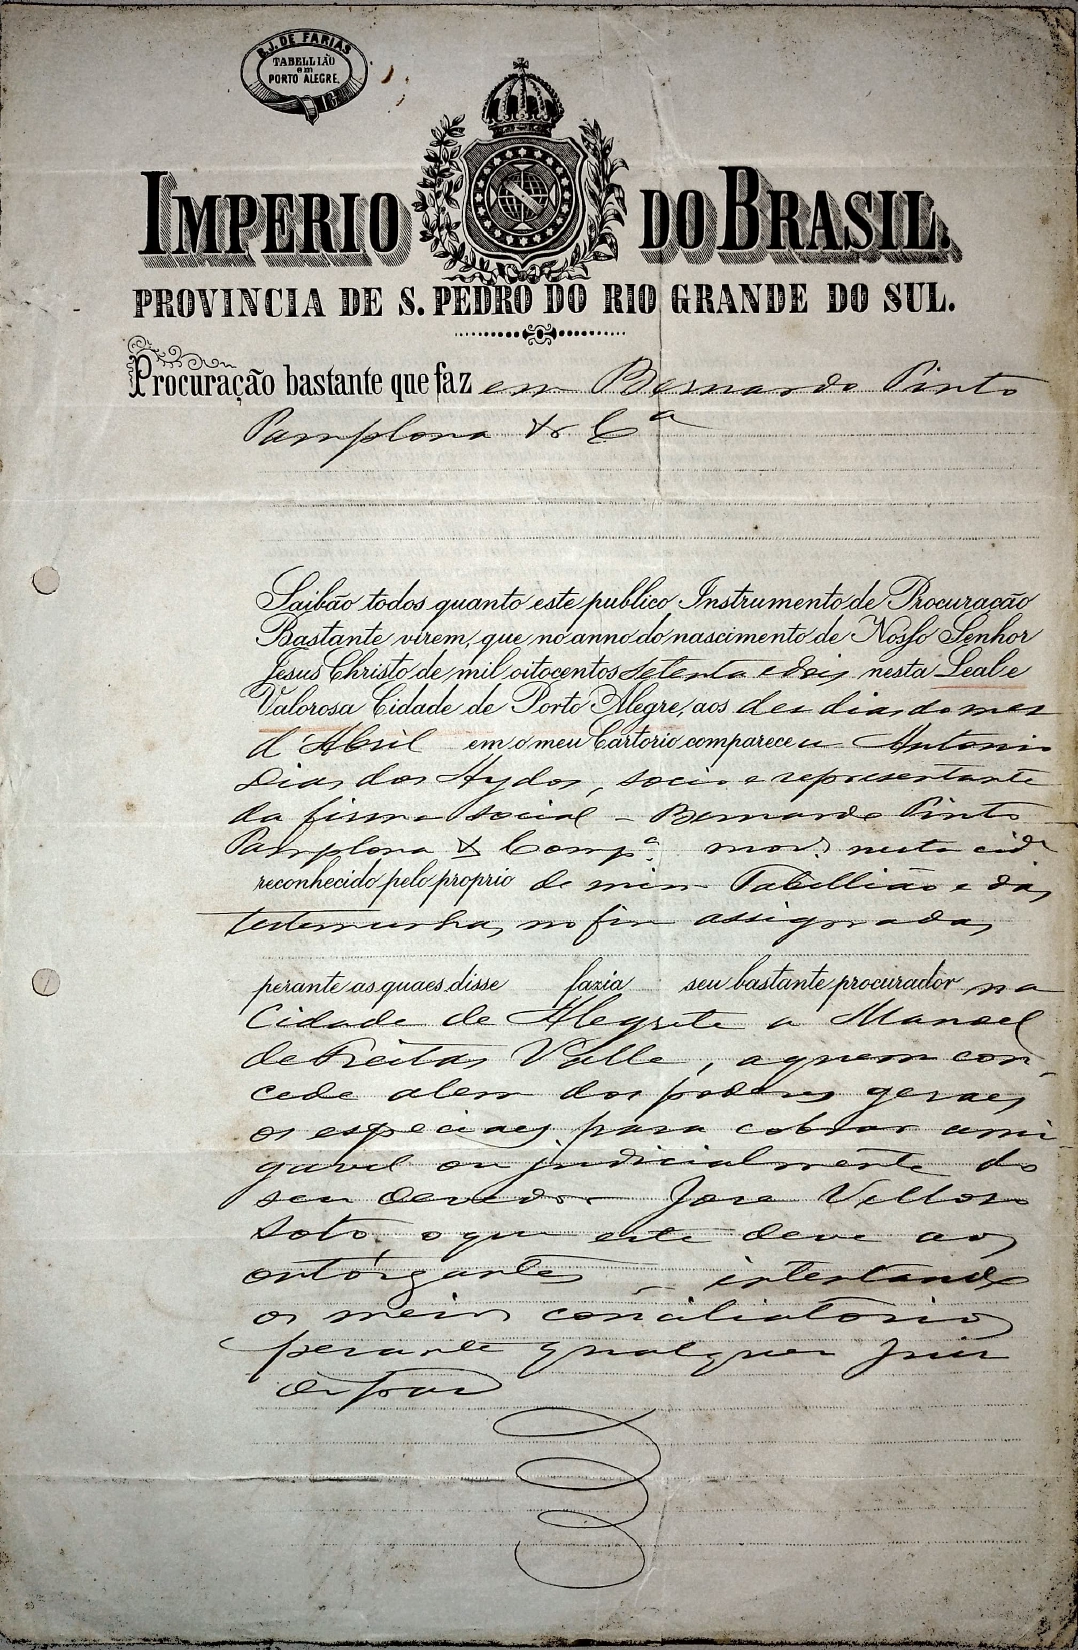 B. J. DE FARIAS
TABELLIÃO
em
PORTO ALEGRE.
IMPERIO DO BRASIL.
PROVINCIA DE S. PEDRO DO RIO GRANDE DO SUL.
Procuração bastante que faz em Bernardo Pinto
Pamplona & Cª
Saibão todos quanto este publico Instrumento de Procuração
Bastante virem, que no anno do nascimento de Nosso Senhor
Jesus Christo de mil oitocentos setenta e dois nesta Leal e
Valorosa Cidade de Porto Alegre, aos dez dias do mez
d'Abril em o meu Cartorio compareceu Antonio
Dias dos Hydos, socio e representante
da firma social – Bernardo Pinto
Pamplona & Compª. mor. nesta cide
reconhecido pelo proprio de mim Tabellião e das
testemunhas no fim assignadas
perante as quaes disse fazia seu bastante procurador na
Cidade de Alegrete a Manoel
de Freitas Valle, a quem con-
cede alem dos poderes geraes
os especiaes para cobrar ami-
gavel ou judicialmente do
seu devedor José Velloso
Soto, o que este deve aos
outorgantes, intentando
os meios conciliatorios
perante qualquer Juiz
de paz